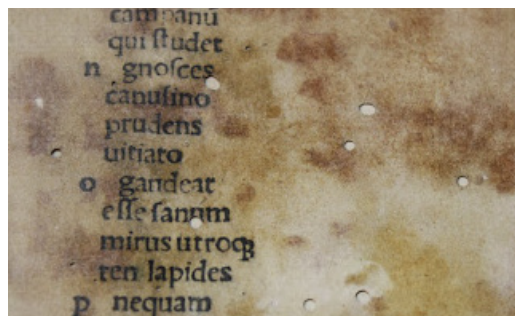 campanū
qui ſtudet
n gnoſces
canuſino
prudens
uitiato
o gaudeat
eſſe ſanum
mirus utroqꝫ
ren lapides
p nequam